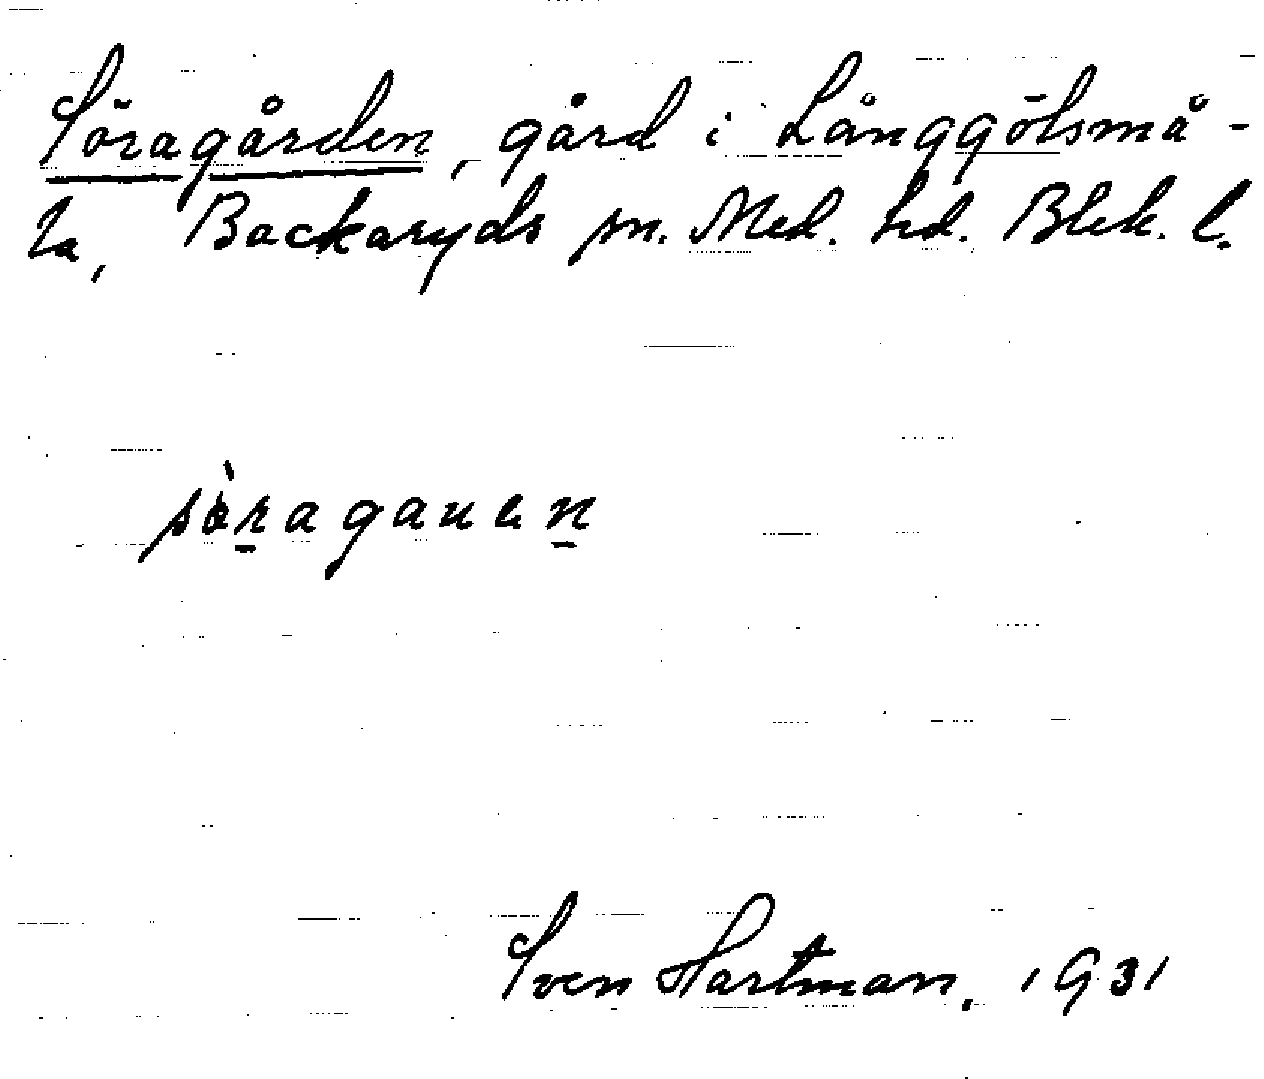 Söragården, gård i Långgölsmå-
la, Backaryds sn. Med. hd. Blek. l.
sö̀ragauen
Sven Hartman, 1931